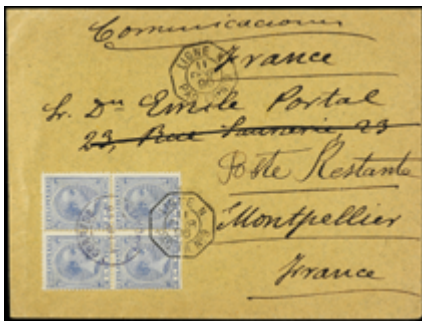 Comunicaciones
France
Sr. Dn Emile Portal
23, Rue Saunerie, 23
Poste Restante
Montpellier
France
LIGNE N